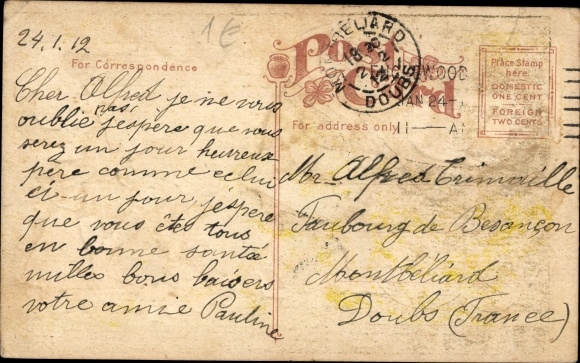 24.1.12
1 €
For Correspondence
Post Card
For address only
Place Stamp
here
DOMESTIC
ONE CENT
FOREIGN
TWO CENTS
MONTBELIARD
DOUBS
WOOD
JAN 24
11 - A
Cher Alfred je ne vous
oublie pas j'espère que vous
serez un jour heureux
père comme celui
ci un jour j'espère
que vous êtes tous
en bonne santé
milles bons baisers
votre amie Pauline
Mr Alfred Trimaille
Faubourg de Besançon
Montbéliard
Doubs (France)